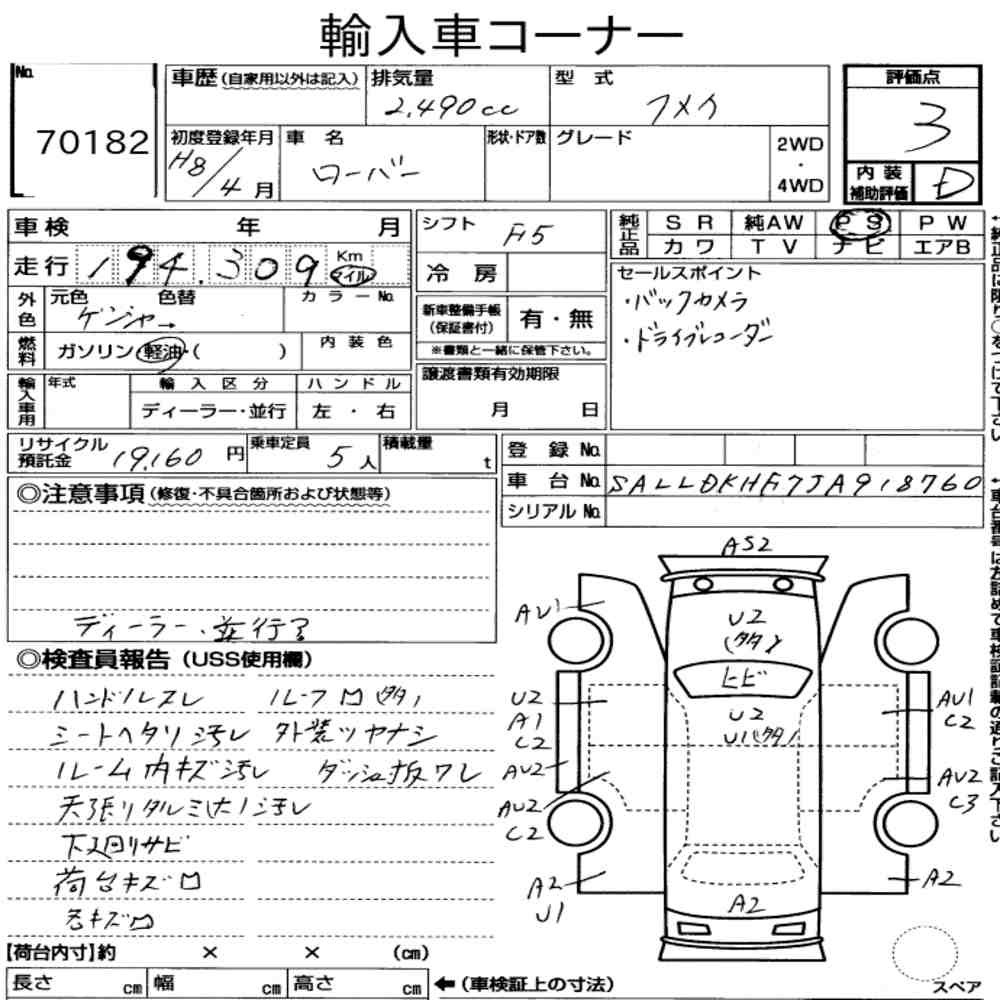 輸入車コーナー
No.
70182
車歴 (自家用以外は記入)
排気量
2,490cc
型 式
フメイ
評価点
3
初度登録年月
H8/4月
車 名
ローバー
形状・ドア数
グレード
2WD
・
4WD
内装補助評価
D
車検 年 月
走行 194,309 Km マイル
シフト F5
冷 房
純正品
S R 純AW P S P W
カワ T V ナビ エアB
セールスポイント
・バックカメラ
・ドライブレコーダー
外色
元色 色替 カラーNo.
ゲンジャー→
燃料
ガソリン・軽油・( )
内 装 色
新車整備手帳
(保証書付)
有・無
※書類と一緒に保管下さい。
譲渡書類有効期限
月 日
輸入車用
年式
輸 入 区 分
ハ ン ド ル
ディーラー・並行
左 ・ 右
リサイクル預託金 19,160円
乗車定員 5人
積載量 t
登 録 No.
車 台 No. SALLDKHF7JA918760
シリアル No.
◎注意事項(修復・不具合箇所および状態等)
ディーラー・並行?
◎検査員報告(USS使用欄)
ハンドルスレ ルーフ凹(多)
シートヘタリ汚レ 外装ツヤナシ
ルーム内キズ汚レ ダッシュ板ワレ
天張リタルミ(大)汚レ
下廻リサビ
荷台キズ凹
各キズ凹
【荷台内寸】約 × × (cm)
長さ cm 幅 cm 高さ cm
←(車検証上の寸法)
AS2
AU1
U2
(多)
ヒビ
U2
U1(多)
U2
A1
C2
AU2
AU2
C2
A2
U1
AU1
C2
AU2
C3
A2
A2
スペア
←純正品に限り○をつけて下さい
←車台番号は左詰めで車検証記載の通りご記入下さい